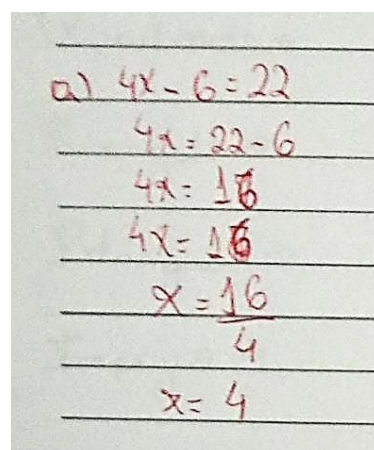 a) 4x - 6 = 22
4x = 22 - 6
4x = 16
4x = 16
x = 16/4
x = 4